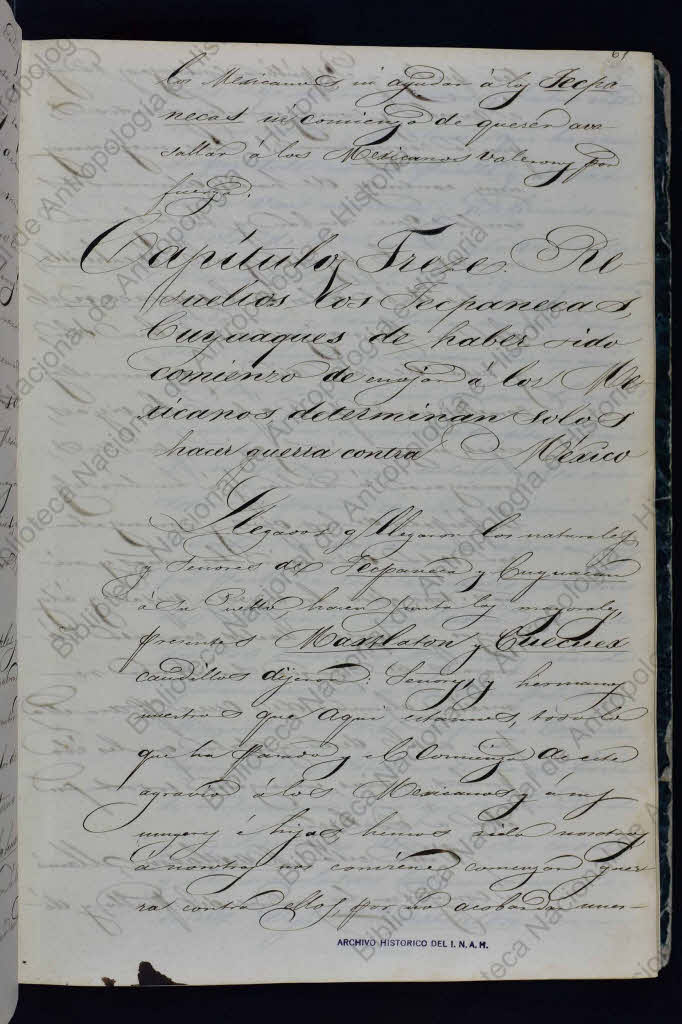 61
los Mexicanos ni ayudar á los Tecpa-
necas un comienzo de querer ava-
sallar á los Mexicanos valerosos por
fuerza.
Capítulo Treze. Re-
sueltos los Tecpanecas
Cuyuaques de haber sido
comienzo de enojar á los Me-
xicanos determinan solos
hacer guerra contra México
Llegavan y llegaron los naturales
y Señores de Tecpaneca y Cuyuacan
á su Pueblo, hacen junta los mayorales,
presentes Maxtlaton y Cuecuex
caudillos dijeron: Senores y hermanos
nuestros que aqui estamos, todo lo
que ha pasado y el comienzo de este
agravio á los Mexicanos y á sus
mugeres é hijas hemos sido nosotros,
á nosotros nos conviene comenzar guer-
ra contra ellos, por no acobardar nues-
ARCHIVO HISTORICO DEL I.N.A.H.
Biblioteca Nacional de Antropología e Historia